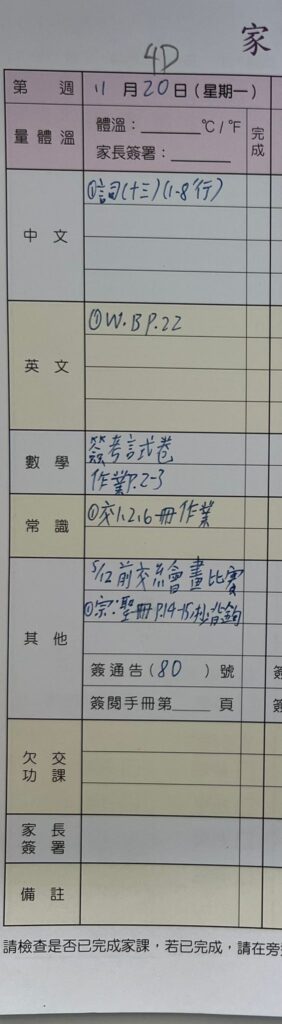 家
4D
第 週 11 月 20 日 (星期一)
量體溫 體溫: ℃ / ℉ 完成
家長簽署:
中文 ①詞(十三)(1-8行)
英文 ①W.B P.22
數學 簽考試卷
作業P.2-3
常識 ①交1,2,6冊作業
其他 5/12前交繪畫比賽
①宗:聖冊P.14-15
簽通告 ( 80 ) 號
簽閱手冊第 頁
欠交功課
家長簽署
備註
請檢查是否已完成家課,若已完成,請在旁